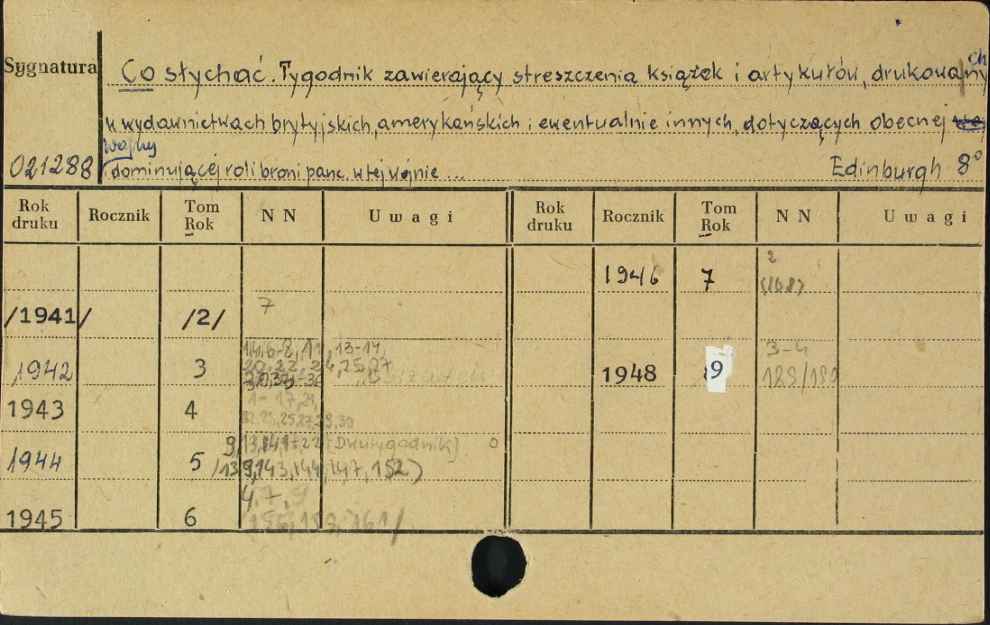 Sygnatura
Co słychać. Tygodnik zawierający streszczenia książek i artykułów, drukowanych
w wydawnictwach brytyjskich, amerykańskich i ewentualnie innych, dotyczących obecnej
wojny
021288 i dominującej roli broni panc. w tej wojnie... Edinburgh 8°
Rok druku Rocznik Tom Rok NN Uwagi Rok druku Rocznik Tom Rok NN Uwagi
1946 7 2
/1941/ /2/ 7
1942 3 1948 9 3-4
1943 4
1944 5 (Dwutygodnik)
/139,143,144,147,152)
1945 6 4,7,9